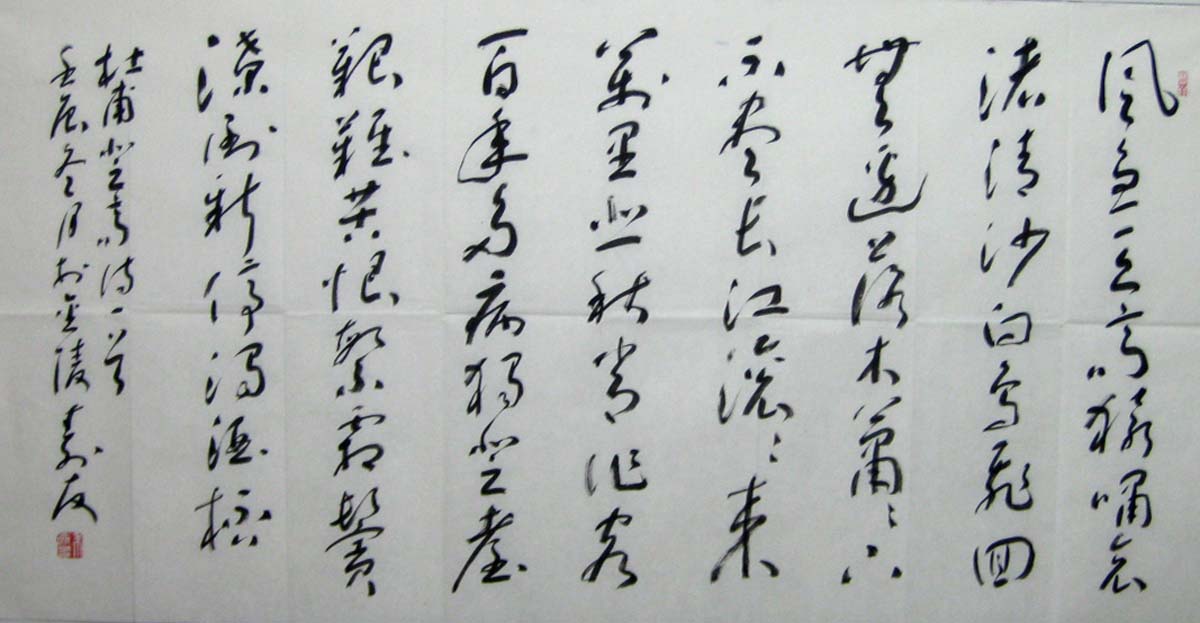 風急天高猿嘯哀
渚清沙白鳥飛回
無邊落木蕭〻下
不盡長江滾〻來
萬里悲秋常作客
百年多病獨登臺
艱難苦恨繁霜鬢
潦倒新停濁酒杯
杜甫登高詩一首
壬辰冬月於金陵 壽友